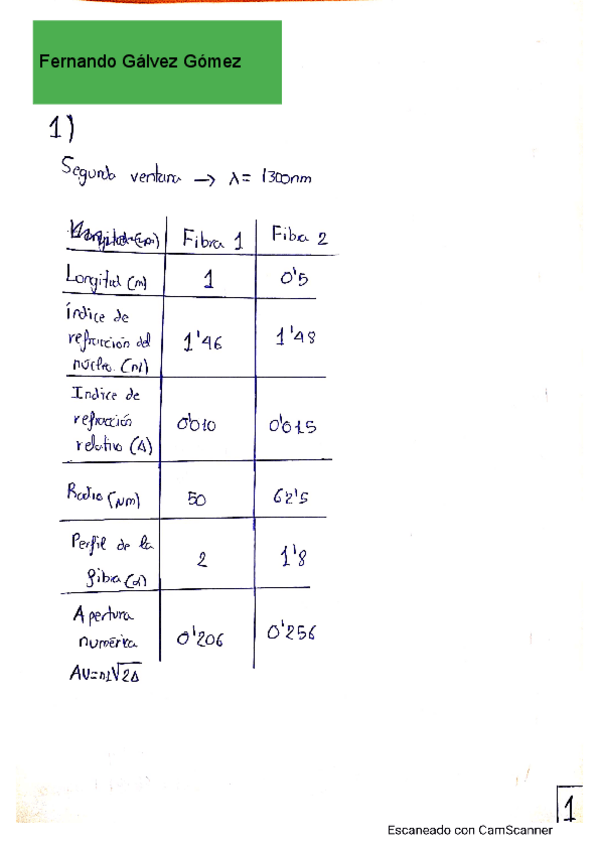 Fernando Gálvez Gómez
1)
Segunda ventana → λ = 1300nm
Fibra 1 Fibra 2
Longitud (m) 1 0'5
Índice de
refracción del
núcleo. (n1) 1'46 1'48
Indice de
refracción
relativo (Δ) 0'010 0'015
Radio (μm) 50 62'5
Perfil de la
fibra (α) 2 1'8
Apertura
numérica 0'206 0'256
AN=n1√2Δ
1
Escaneado con CamScanner